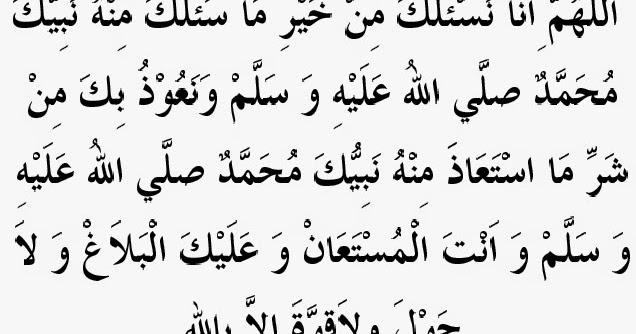 اَللّٰهُمَّ اِنَّا نَسْئَلُكَ مِنْ خَيْرِ مَا سَئَلَكَ مِنْهُ نَبِيُّكَ
مُحَمَّدٌ صلَّي اللهُ عَلَيْهِ وَ سَلَّمْ وَنَعُوْذُ بِكَ مِنْ
شَرِّ مَا اسْتَعَاذَ مِنْهُ نَبِيُّكَ مُحَمَّدٌ صلَّي اللهُ عَلَيْهِ
وَ سَلَّمْ وَ اَنْتَ الْمُسْتَعَانْ وَ عَلَيْكَ الْبَلاَغْ وَ لاَ
حَوْلَ ولاَقوَّةَ الاَّ بالله